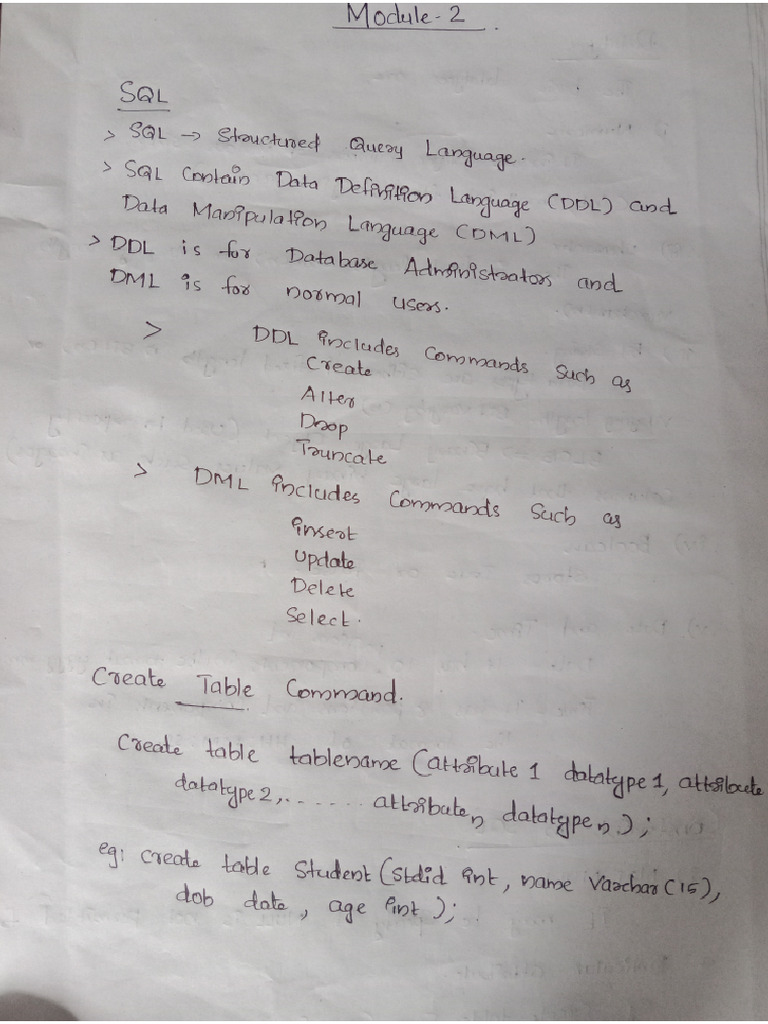 Module-2
SQL
> SQL → Structured Query Language.
> SQL Contain Data Definition Language (DDL) and
Data Manipulation Language (DML)
> DDL is for Database Administrators and
DML is for normal users.
> DDL includes Commands Such as
Create.
Alter
Drop
Truncate
> DML includes Commands Such as
insert
update
Delete
Select.
Create Table Command.
Create table tablename (attribute 1 datatype 1, attribute
datatype 2, ....... attribute n datatype n.);
eg: create table Student (Stdid int, name Varchar (15),
dob date, age int );